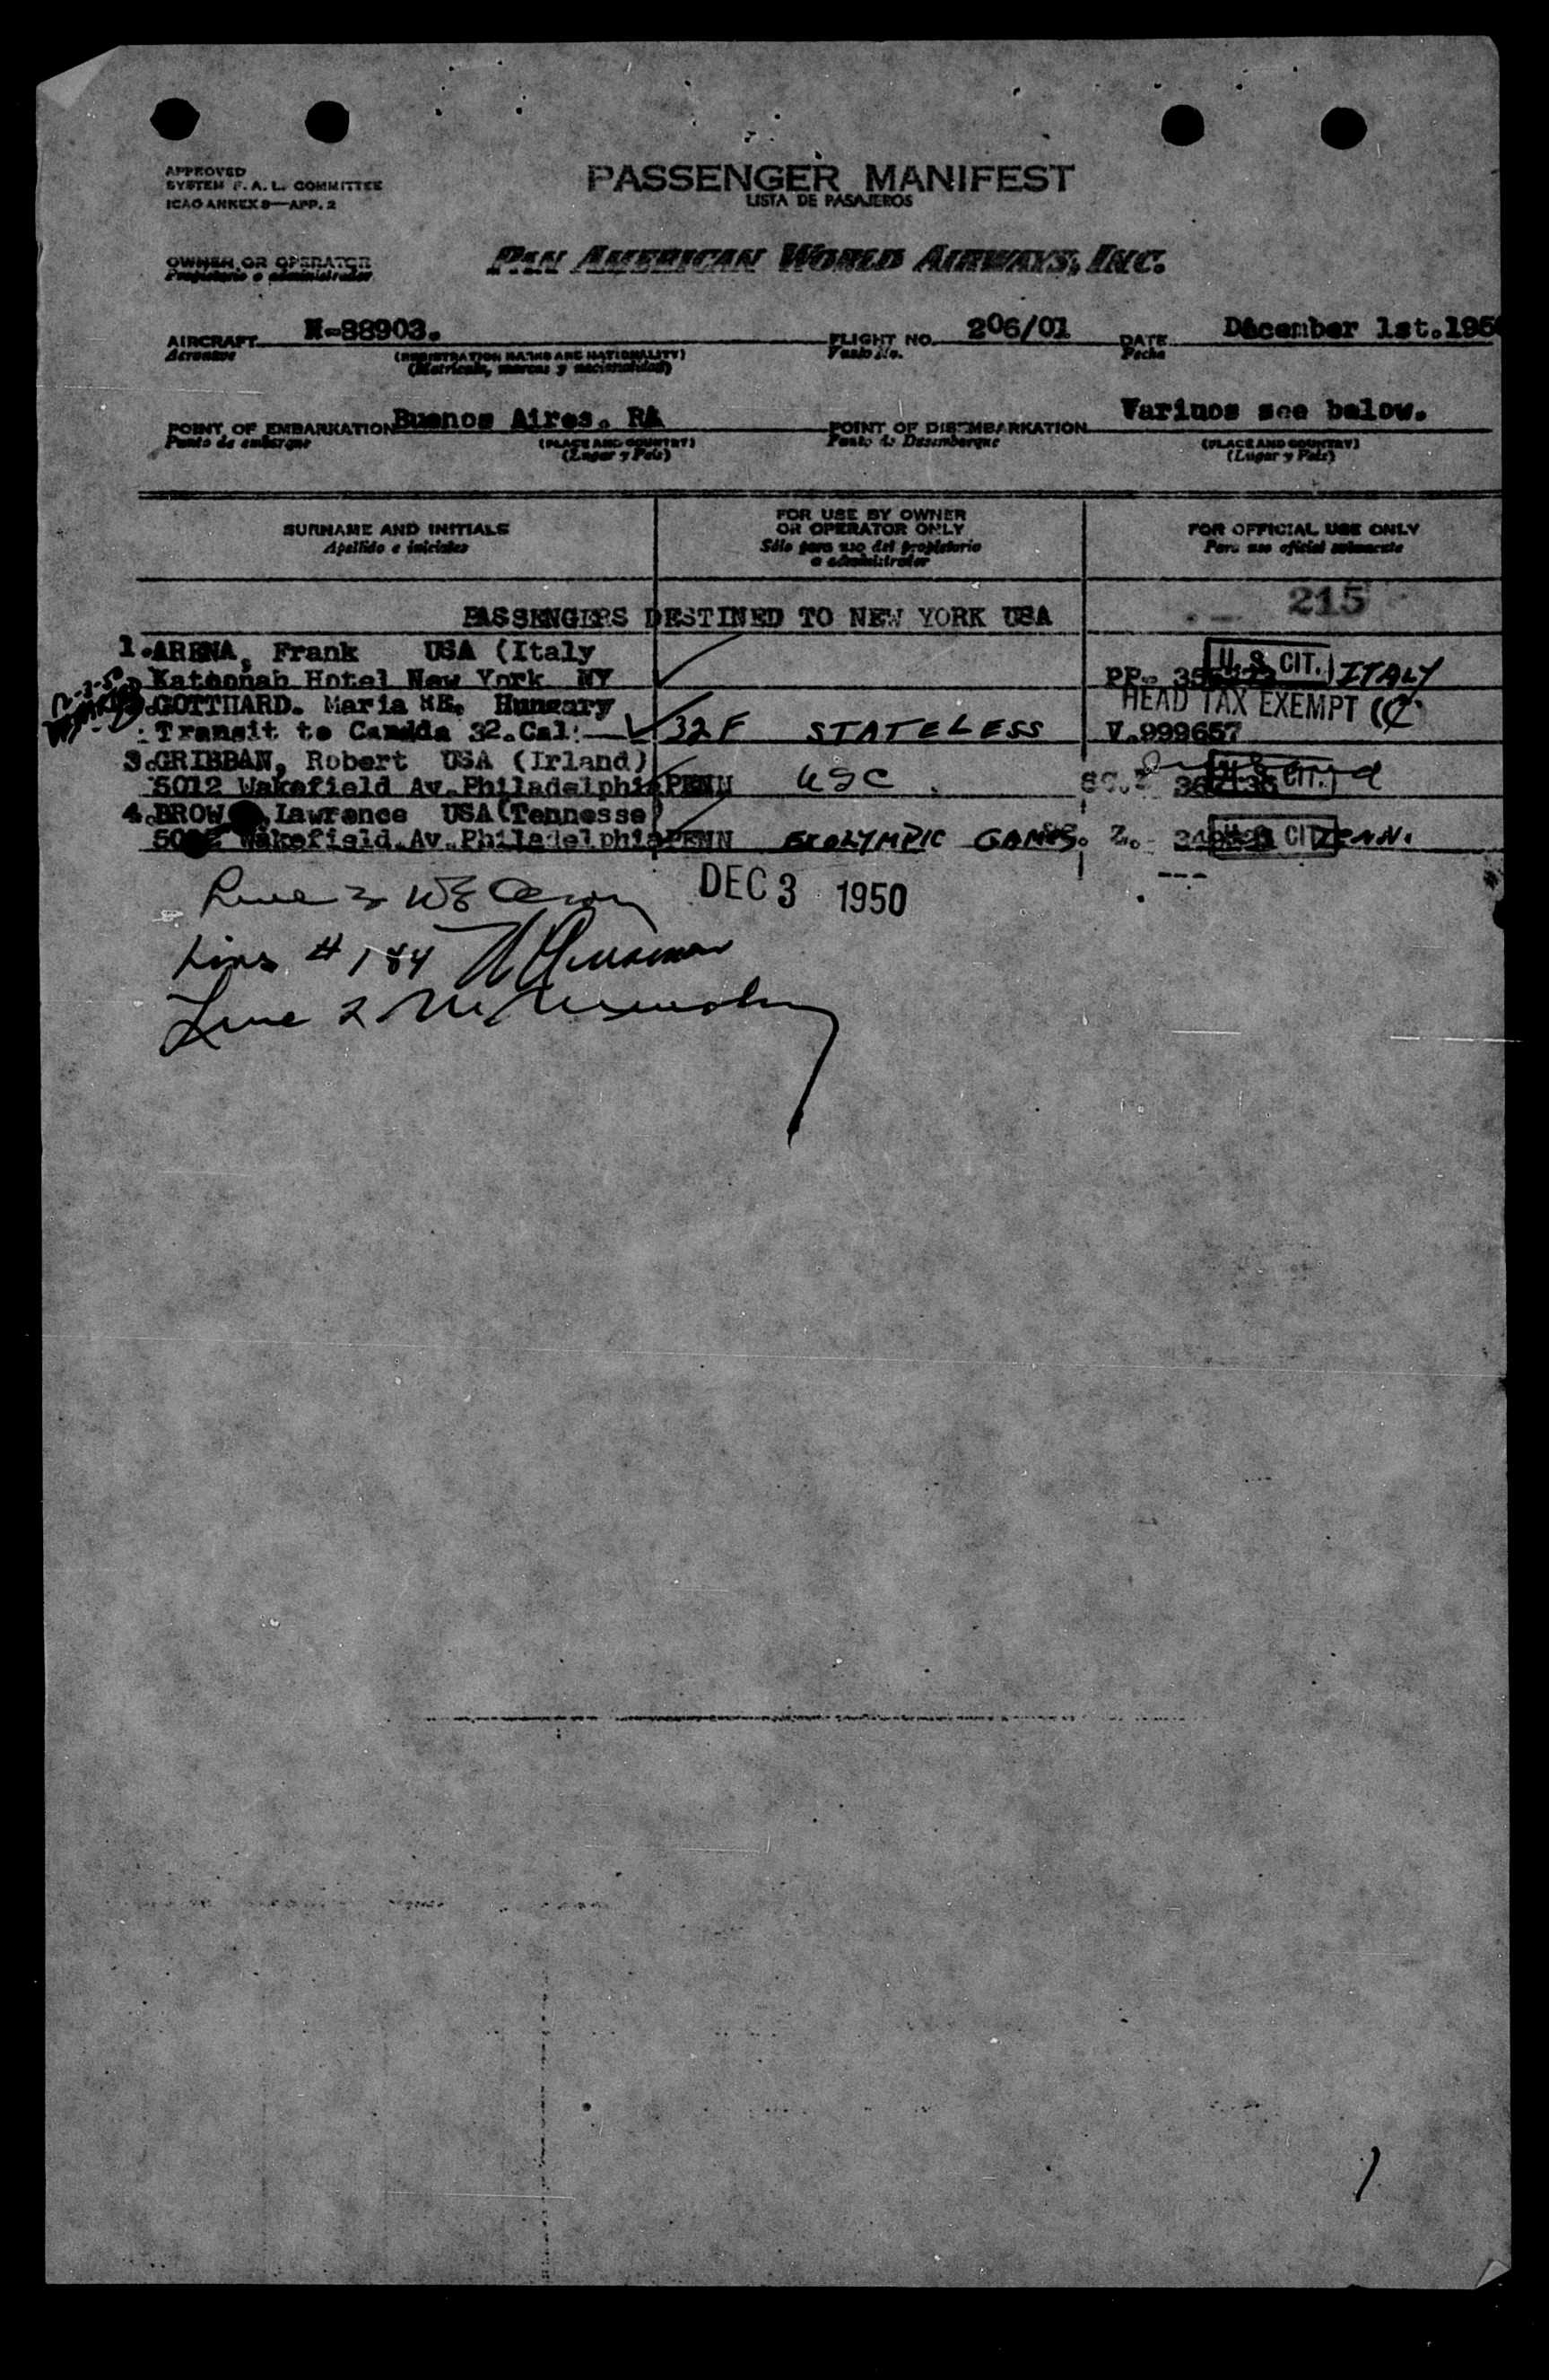 APPROVED
SYSTEM F. A. L. COMMITTEE
ICAO ANNEX 9—APP. 2
PASSENGER MANIFEST
LISTA DE PASAJEROS
OWNER OR OPERATOR
Propietario o administrador
PAN AMERICAN WORLD AIRWAYS, INC.
AIRCRAFT N-88903. FLIGHT NO. 206/01 DATE December 1st.195
Aeronave (REGISTRATION MARKS AND NATIONALITY) Vuelo No. Fecha
(Matricula, marcas y nacionalidad)
POINT OF EMBARKATION Buenos Aires. RA POINT OF DISEMBARKATION Variuos see below.
Punto de embarque (PLACE AND COUNTRY) Punto de Desembarque (PLACE AND COUNTRY)
(Lugar y País) (Lugar y País)
SURNAME AND INITIALS FOR USE BY OWNER OR OPERATOR ONLY FOR OFFICIAL USE ONLY
Apellido e iniciales Sólo para uso del propietario o administrador Para uso oficial solamente
PASSENGERS DESTINED TO NEW YORK USA 215
1.ARENA, Frank USA (Italy U.S. CIT. ITALY
Katoonah Hotel New York NY PP.
GOTTHARD. Maria Hungary HEAD TAX EXEMPT
Transit to Candda 32.Cal: 32F STATELESS V.999657
3.GRIBBAN, Robert USA (Irland)
5012 Wakefield Av.Philadelphia PENN USC CIT.
4.BROW Lawrence USA(Tennesse)
Wakefield.Av.Philadelphia PENN OLYMPIC GAMES. Z. U.S. CIT TENN.
DEC 3 1950
Line 3
Lines # 1&4
Line 2